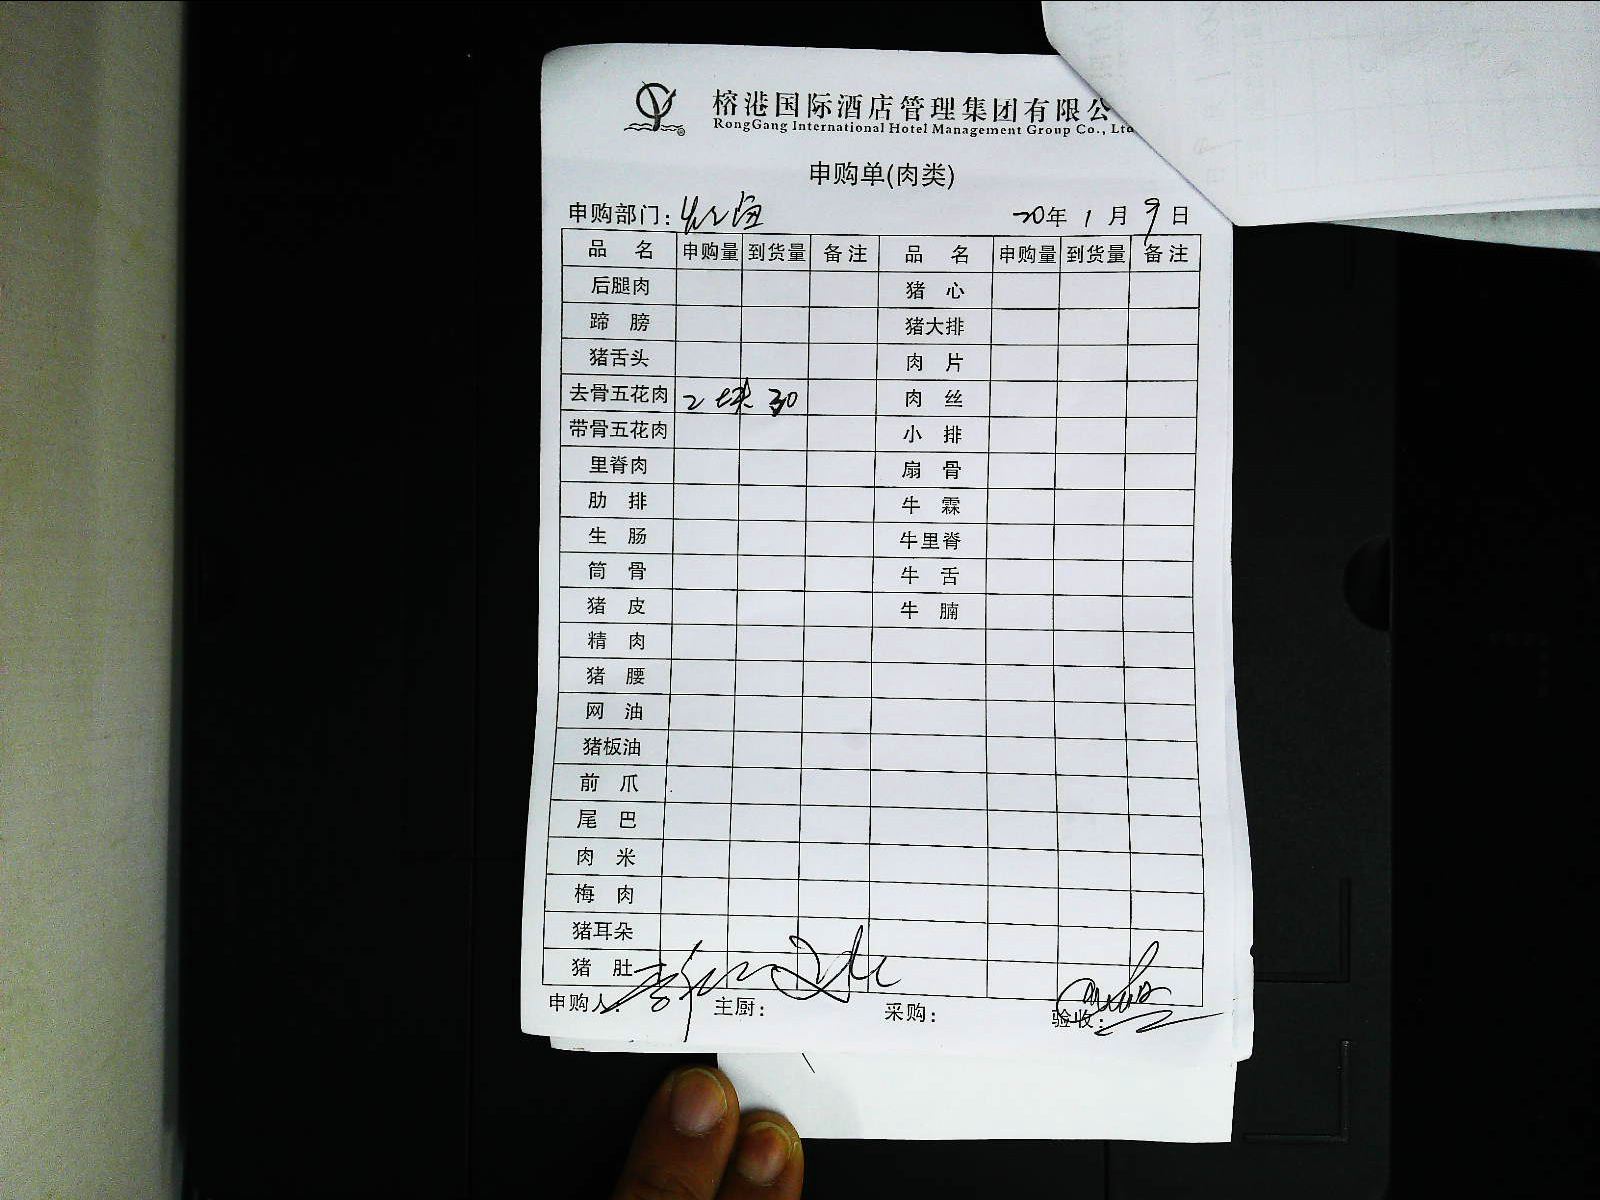 榕港国际酒店管理集团有限公
RongGang International Hotel Management Group Co., Ltd
申购单(肉类)
申购部门: 20年 1 月 9 日
品 名 申购量 到货量 备注 品 名 申购量 到货量 备注
后腿肉 猪 心
蹄 膀 猪大排
猪舌头 肉 片
去骨五花肉 2块 30 肉 丝
带骨五花肉 小 排
里脊肉 扇 骨
肋 排 牛 霖
生 肠 牛里脊
筒 骨 牛 舌
猪 皮 牛 腩
精 肉
猪 腰
网 油
猪板油
前 爪
尾 巴
肉 米
梅 肉
猪耳朵
猪 肚
申购人: 主厨: 采购: 验收: